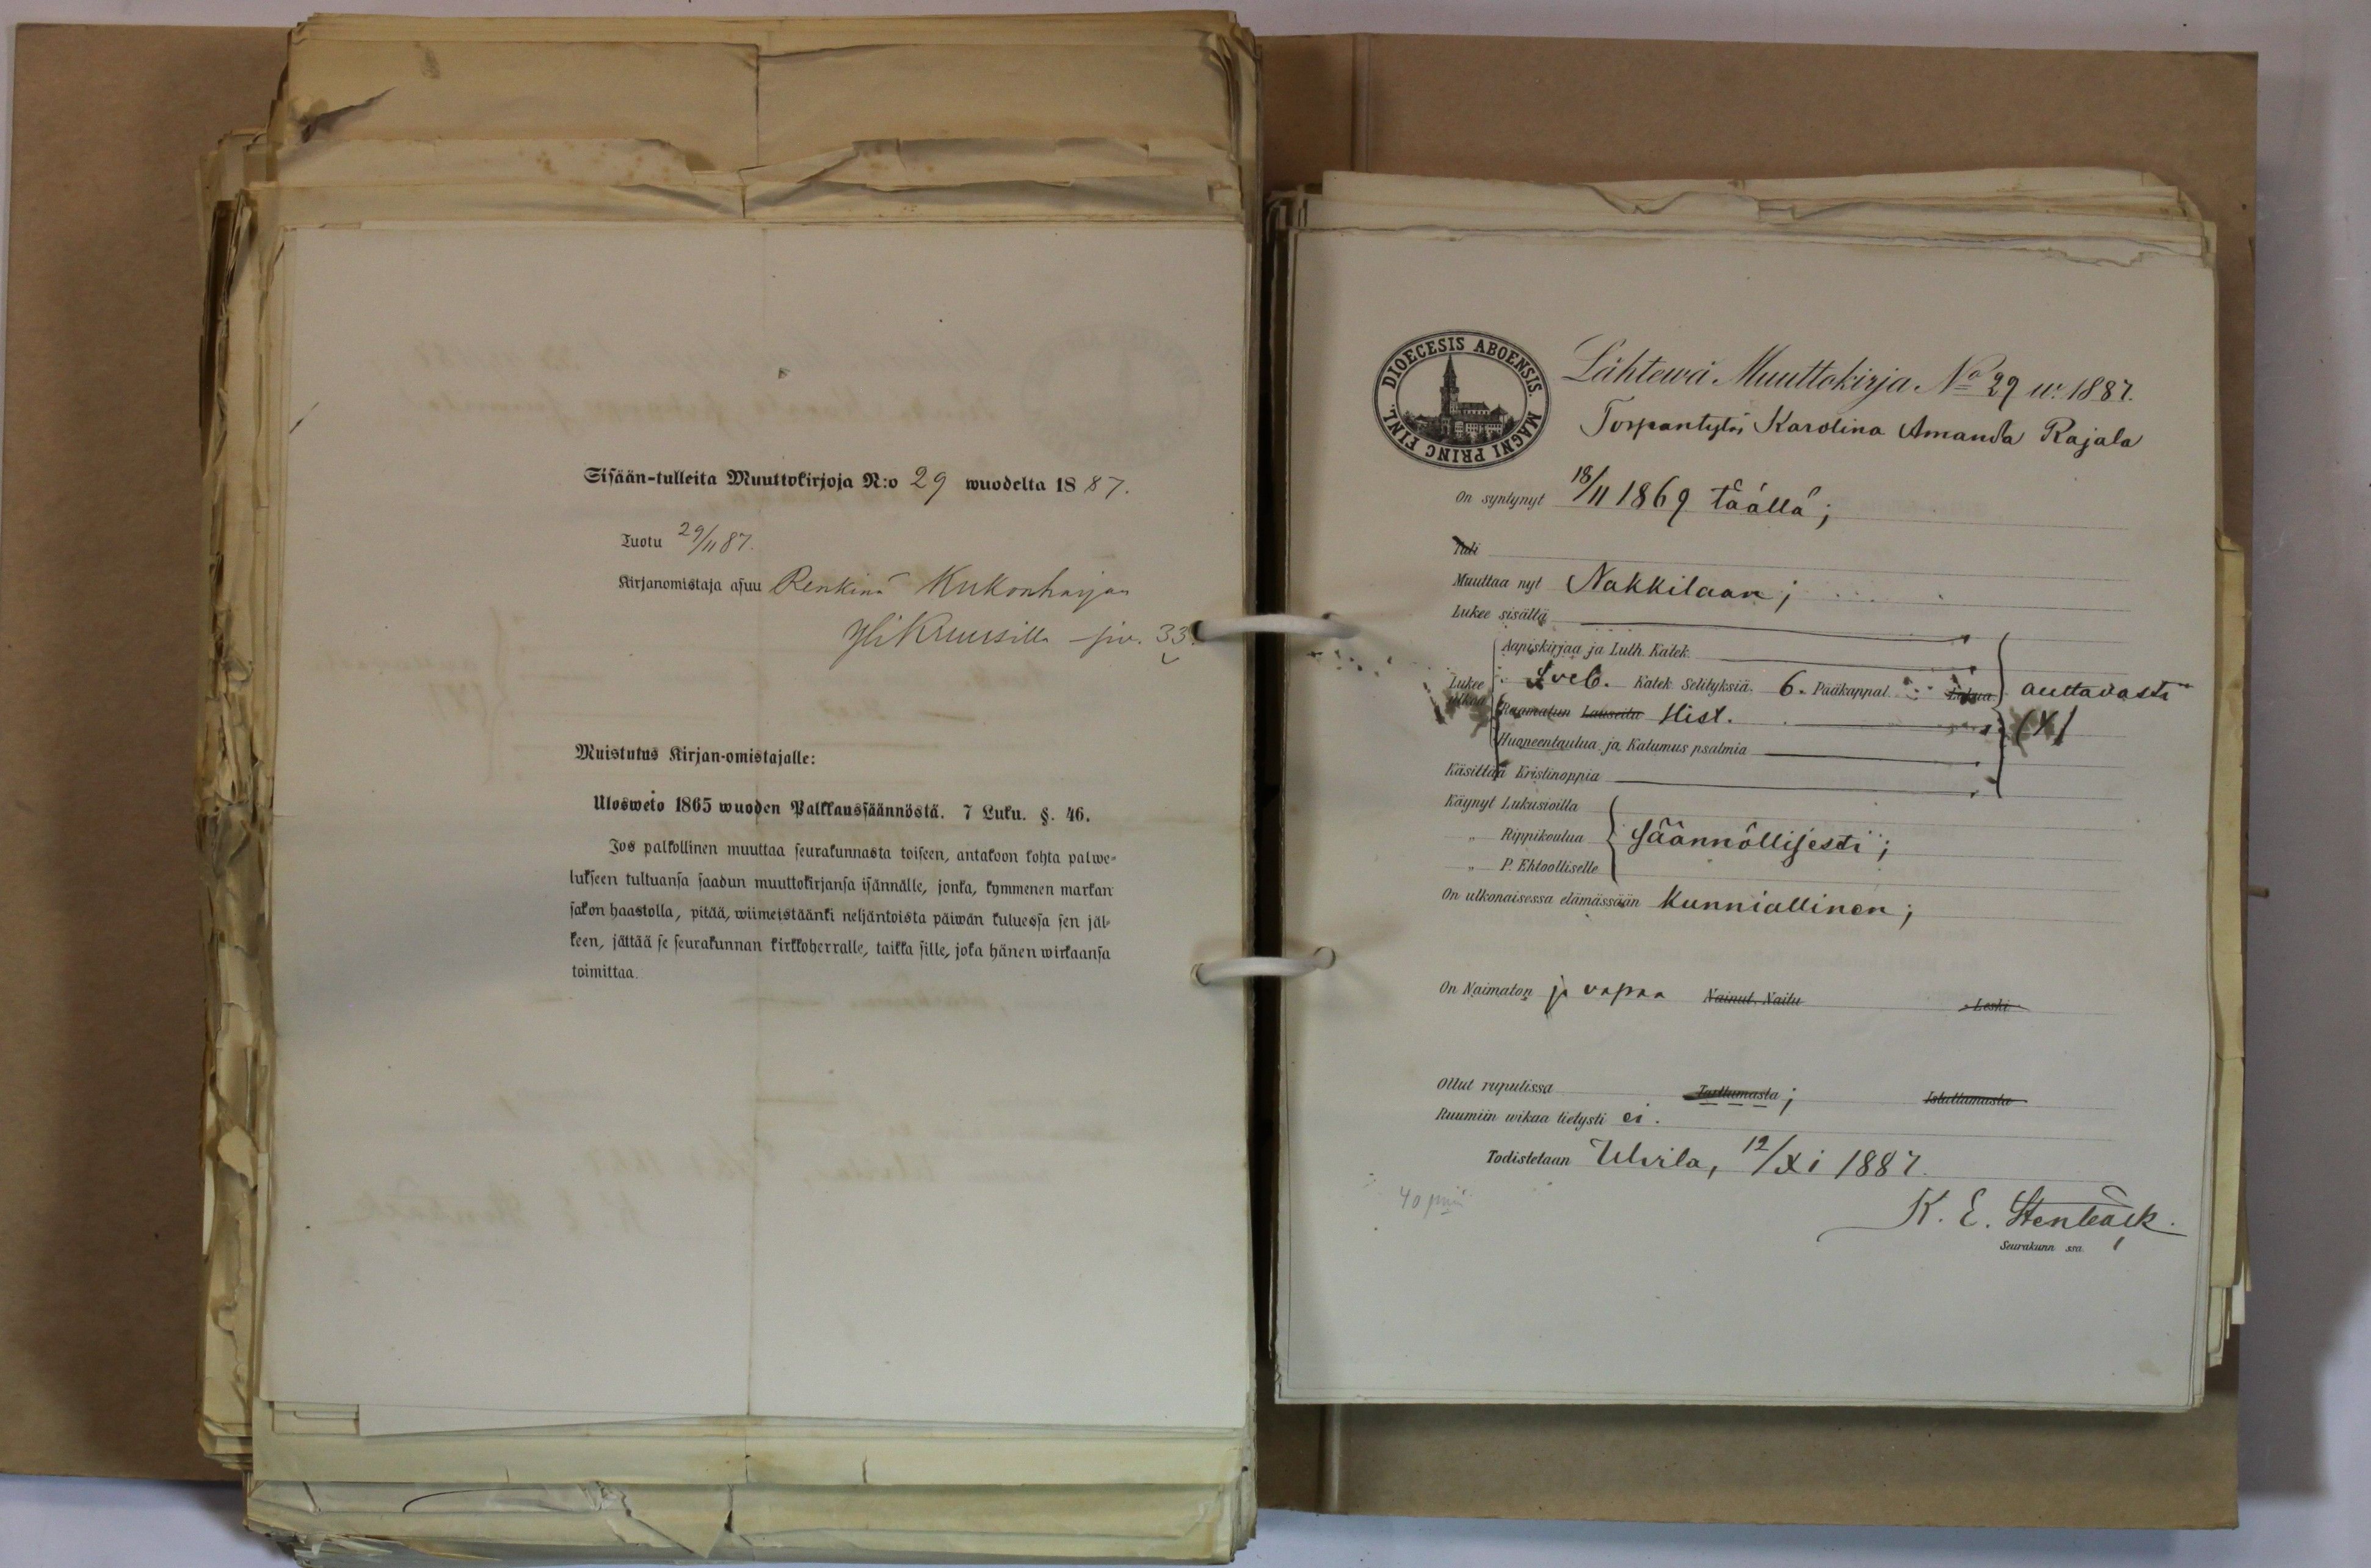 Sisään-tulleita Muuttokirjoja N:o 29 wuodelta 1887.
Tuotu 29/11 87.
Kirjanomistaja asuu Renkinä Kukonharjan
Yli Kruusilla siv. 33.
Muistutus Kirjan-omistajalle:
Ulosweto 1865 wuoden Palkkaussäännöstä. 7 Luku. §. 46.
Jos palkollinen muuttaa seurakunnasta toiseen, antakoon kohta palwe-
lukseen tultuansa saadun muuttokirjansa isännälle, jonka, kymmenen markan
sakon haastolla, pitää, wiimeistäänki neljäntoista päiwän kuluessa sen jäl-
keen, jättää se seurakunnan kirkkoherralle, taikka sille, joka hänen wirkaansa
toimittaa.
DIOECESIS ABOENSIS. MAGNI PRINC FINL.
Lähtewä Muuttokirja No 29 w. 1887.
Torpantytär Karolina Amanda Rajala
On syntynyt 18/11 1869 täällä;
Tuli
Muuttaa nyt Nakkilaan;
Lukee sisältä
Aapiskirjaa ja Luth. Katek.
Lukee ulkoa Sveb. Katek. Selityksiä. 6. Pääkappal. Lukua auttavasti
Raamatun Lauseita Hist. (X)
Huoneentaulua ja Katumus psalmia
Käsittää Kristinoppia
Käynyt Lukusioilla
" Rippikoulua säännöllisesti;
" P. Ehtoolliselle
On ulkonaisessa elämässään kunniallinen;
On Naimaton ja vapaa Nainut. Naitu Leski
Ollut rupulissa Tarttumasta; Istuttamasta
Ruumiin wikaa tietysti ei.
Todistetaan Ulvila, 12/XI 1887.
40 pniä
K. E. Stenbäck.
Seurakunn ssa.